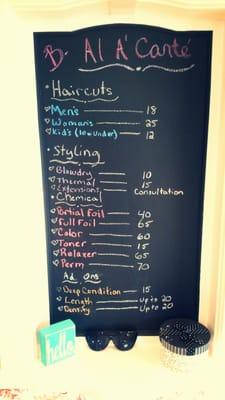 B. Al A' Carté
Haircuts
Men's 18
Woman's 25
Kid's (10 & under) 12
Styling
Blowdry 10
Thermal 15
Extensions Consultation
Chemical
Partial Foil 40
Full Foil 65
Color 60
Toner 15
Relaxer 65
Perm 70
Ad Ons
Deep Condition 15
Length up to 20
Density up to 20
hello